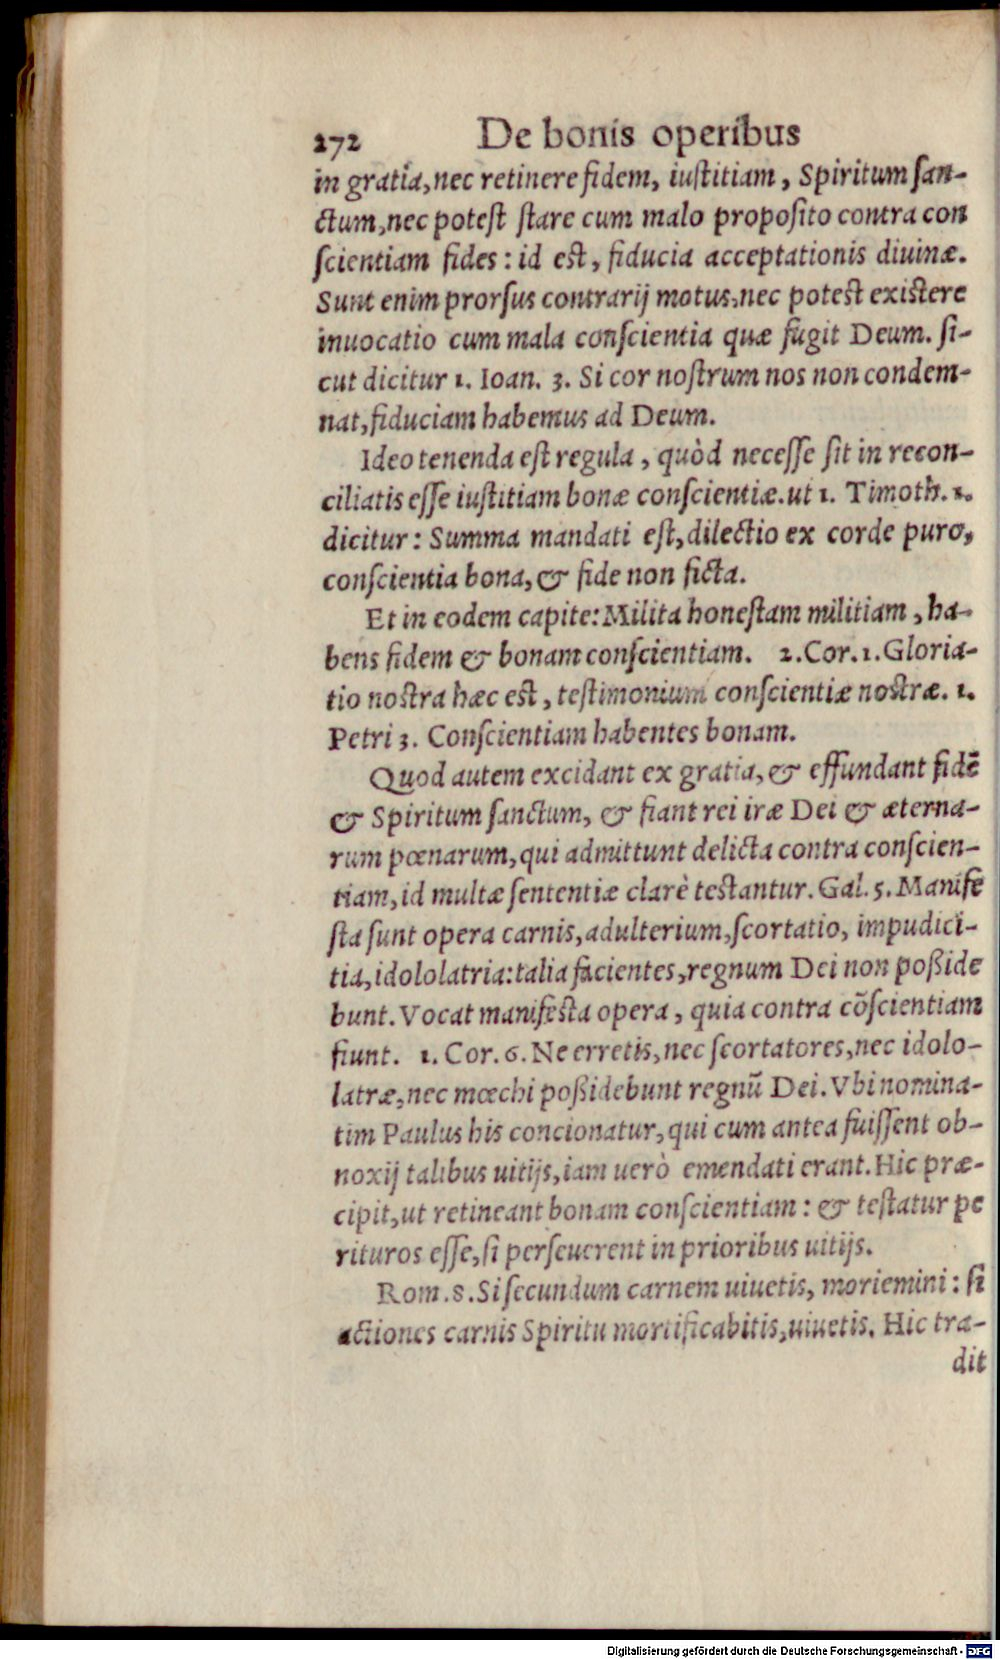 272 De bonis operibus
in gratia, nec retinere fidem, iustitiam, Spiritum ſan-
ctum, nec poteſt ſtare cum malo propoſito contra con
ſcientiam fides: id eſt, fiducia acceptationis diuinæ.
Sunt enim prorſus contrarij motus, nec poteſt exiſtere
inuocatio cum mala conſcientia quæ fugit Deum. ſi-
cut dicitur 1. Ioan. 3. Si cor noſtrum nos non condem-
nat, fiduciam habemus ad Deum.
Ideo tenenda eſt regula, quòd neceſſe ſit in recon-
ciliatis eſſe iuſtitiam bonæ conſcientiæ. ut 1. Timoth. 1.
dicitur: Summa mandati eſt, dilectio ex corde puro,
conſcientia bona, & fide non ficta.
Et in eodem capite: Milita honeſtam militiam, ha-
bens fidem & bonam conſcientiam. 2. Cor. 1. Gloria-
tio noſtra hæc eſt, teſtimonium conſcientiæ noſtræ. 1.
Petri 3. Conſcientiam habentes bonam.
Quod autem excidant ex gratia, & effundant fidē
& Spiritum ſanctum, & fiant rei iræ Dei & æterna-
rum pœnarum, qui admittunt delicta contra conſcien-
tiam, id multæ ſententiæ clarè teſtantur. Gal. 5. Manife
ſta ſunt opera carnis, adulterium, ſcortatio, impudici-
tia, idololatria: talia facientes, regnum Dei non poßide
bunt. Vocat manifeſta opera, quia contra cōſcientiam
fiunt. 1. Cor. 6. Ne erretis, nec ſcortatores, nec idolo-
latræ, nec mœchi poßidebunt regnū Dei. Vbi nomina-
tim Paulus his concionatur, qui cum antea fuiſſent ob-
noxij talibus uitijs, iam uerò emendati erant. Hic præ-
cipit, ut retineant bonam conſcientiam: & teſtatur pe
rituros eſſe, ſi perſeuerent in prioribus uitijs.
Rom. 8. Si ſecundum carnem uiuetis, moriemini: ſi
actiones carnis Spiritu mortificabitis, uiuetis. Hic tra-
dit
Digitalisierung gefördert durch die Deutsche Forschungsgemeinschaft - DFG